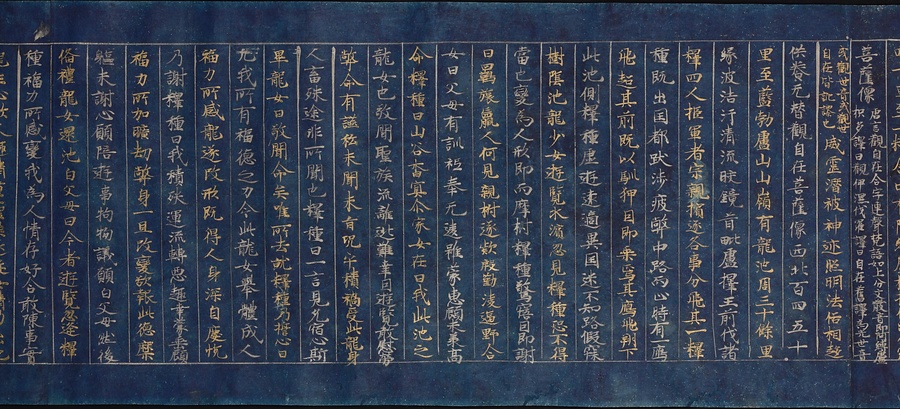 菩薩像唐言觀自在合字連聲梵語如上分文散音即阿縛盧
枳多譯曰觀伊濕伐羅譯曰自在舊譯為光世音
或觀世音或觀世
自在皆訛謬也威靈潛被神迹照明法俗相趍
供養无替觀自在菩薩像西北百四五十
里至藍勃盧山山嶺有龍池周三十餘里
淥波浩汗清流皎鏡昔毗盧擇王前伐諸
釋四人拒軍者宗親擯逐各事分飛其一釋
種既出國都跋涉疲弊中路而止時有一鴈
飛趣其前既以馴狎因即乘焉其鴈飛翔下
此池側釋種虛遊遠適異國迷不知路假寐
樹陰池龍少女遊覽水濱忽見釋種恐不得
當也變為人形即而摩拊釋種驚寤因即謝
曰羇旅羸人何見親拊遂款慇懃淩逼野合
女曰父母有訓祗奉无違雖蒙惠顧未承高
命釋種曰山谷杳冥尒家安在曰我此池之
龍女也敬聞聖族流離逃難幸因遊覽敢慰勞
弊命有燕私未聞來旨況乎積禍受此龍身
人畜殊途非所聞也釋種曰一言見允宿心斯
畢龍女曰敬聞命矣唯所去就釋種乃誓心曰
凡我所有福德之力令此龍女舉體成人
福力所感龍遂改形既得人身深自慶悅
乃謝釋種曰我積殃運流轉惡趣幸蒙垂顧
福力所加曠劫弊身一旦改變欲報此德糜
軀未謝心願陪遊事拘物議願白父母然後
俻禮龍女還池白父母曰今者遊覽忽逢釋
種福力所感變我為人情存好合敢陳事實